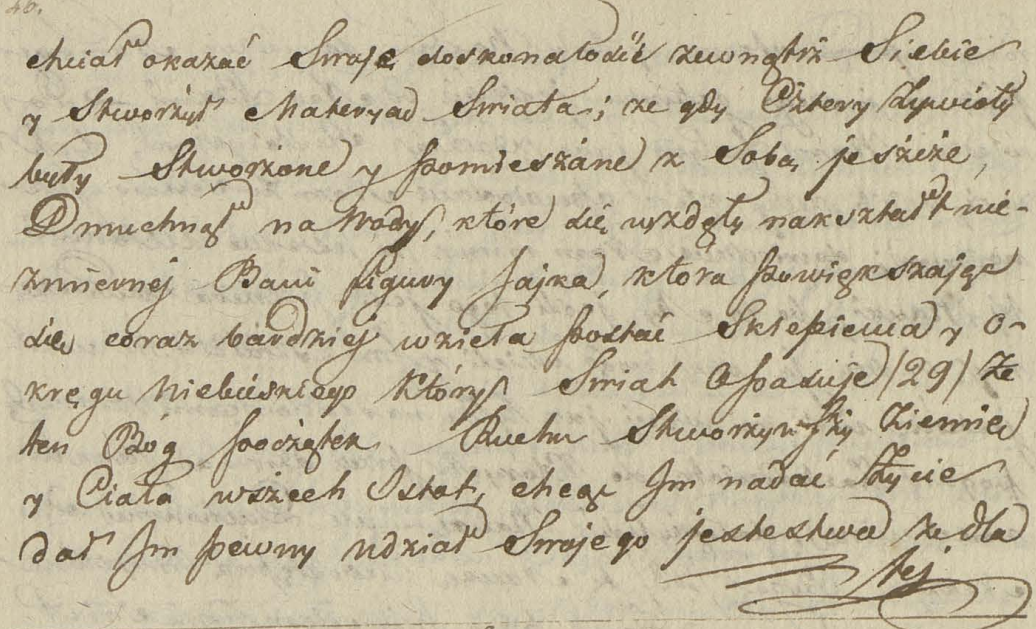 40.
chciał okazać Swoję doskonałość zewnątrz Siebie
y Stworzył Materyał Swiata; że gdy Cztery Zywioły
były Stworzone y pomieszane z Sobą jeszcze,
Dmuchnął na Wody, które się wzdęły nakształt nie-
zmiernéj Bani figury Jajka, która powiększając
się coraz bardziej wzieła postać Sklepienia y o-
kręgu Niebieskiego który Swiat Opasuje /29/ Że
ten Bóg początek Ruchu Stworzywszy Ziemię
y Ciała wszech Istot, chcąc Im nadać Życie
dał Im pewny udział Swojego jestestwa że dla
tej